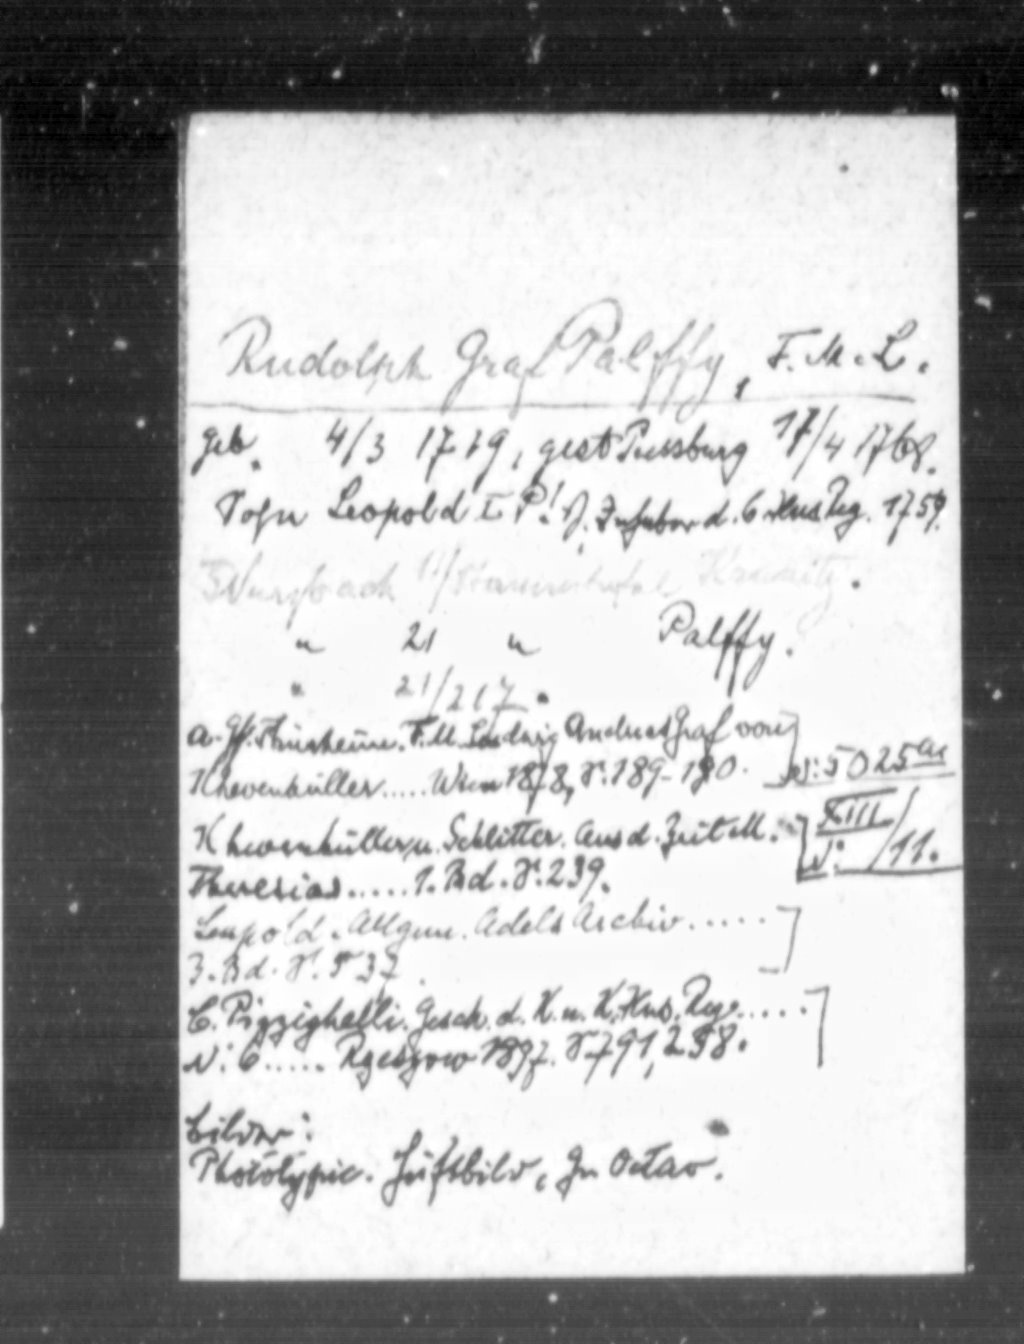 Rudolph Graf Palffy, F.M.L.
geb. 4/3 1719, gest Pressburg 17/4 1768.
Sohn Leopold I P! D. Inhaber d. 6 Hus Reg. 1759.
Wurzbach 17/ Stammtafel
" 21 " Palffy.
" 21/217.
A. Gf. Thürheim. F.M. Ludwig Andreas Graf von
Khevenhüller..... Wien 1878, S. 189-190. N: 5025 as
Khevenhüller u. Schlitter. Aus d. Zeit M. XIII
Theresias..... 1. Bd. S. 239. N: /11.
Leupold. Allgem. Adels Archiv.....
3. Bd. S. 537.
C. Pizzighelli. Gesch. d. K. u. K. Hus. Reg.....
N: 6..... Rzeszow 1897. S 791, 258.
Bilder:
Phototypie. Hüftbild, Gr. Octav.